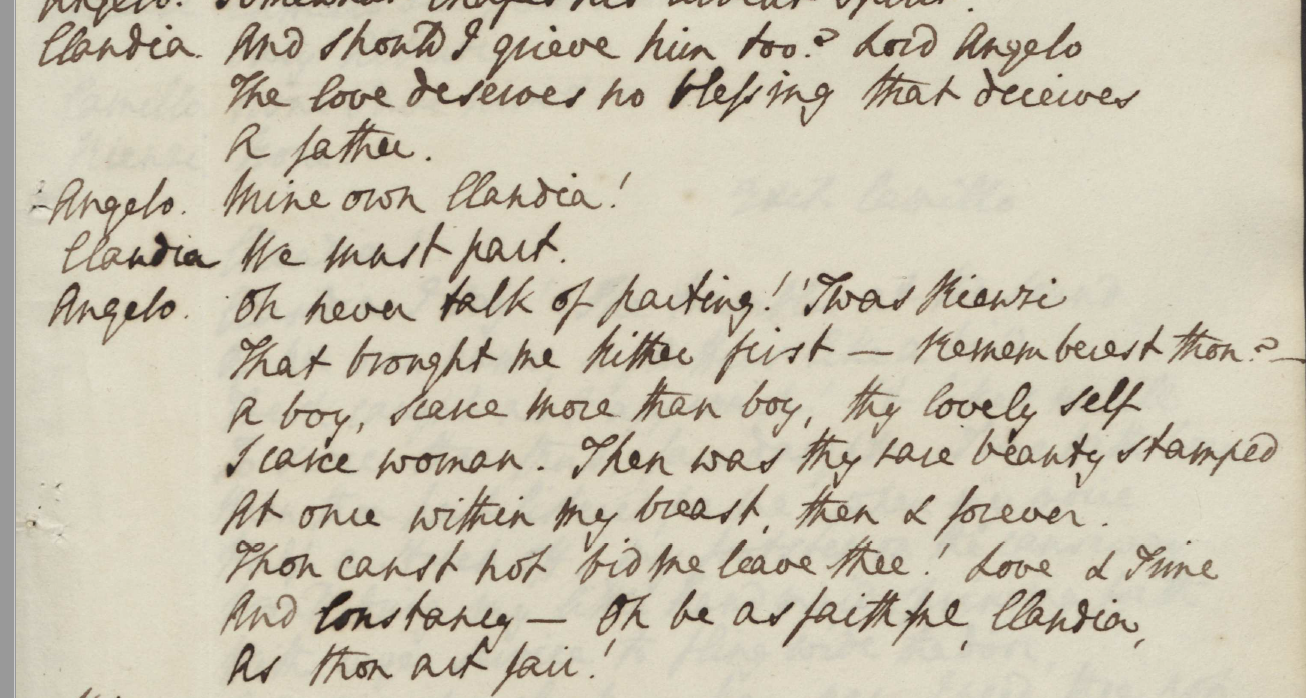 Angelo. Somewhat
Claudia. And should I grieve him too? Lord Angelo
The love deserves no blessing that deceives
A father.
Angelo. Mine own Claudia!
Claudia We must part.
Angelo. Oh never talk of parting! 'Twas Rienzi
That brought me hither first — Rememberest thou? —
A boy, scarce more than boy, thy lovely self
Scarce woman. Then was thy rare beauty stamped
At once within my breast, then & forever.
Thou canst not bid me leave thee! Love & Time
And Constancy — Oh be as faithful, Claudia,
As thou art fair!